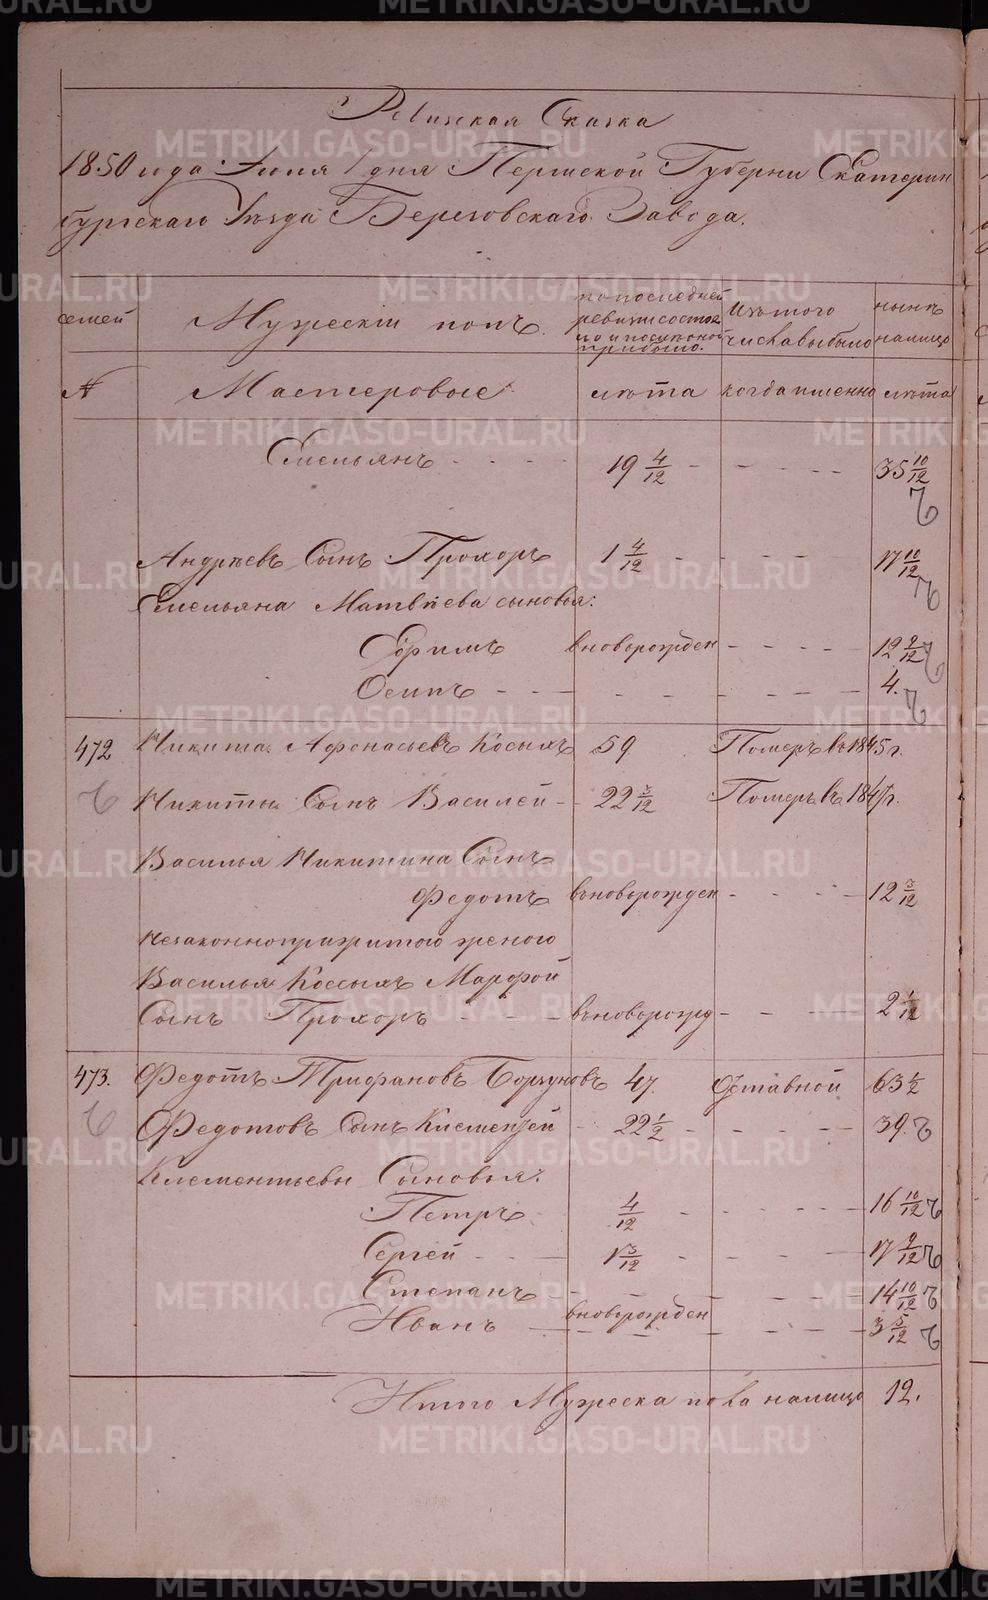 Ревизская Сказка
1850 года Июня 1 дня Пермской Губерни Екатерин
бургскаго Уезда Березовскаго Завода.
семей
Мужескій полъ.
по последней
ревизіи состоя
ло и после оной
прибыло.
Изъ того
числа выбыло
ныне
налицо
№
Мастеровые
лѣта
когда именно
лѣта
Емельянъ 19 4/12 35 10/12
Андрѣевъ Сынъ Прохоръ 1 4/12 17 10/12
Емельяна Матвѣева сыновья:
Ефимъ вновьрожден 12 9/12
Осипъ 4.
472 Никита Афонасьевъ Косыхъ 59 Померъ въ 1845 г.
Никиты Сынъ Василей 22 3/12 Померъ въ 1847 г.
Василья Никитина Сынъ
Федотъ вновьрожден 12 3/12
незаконноприжитого женою
Василья Коссыхъ Марфой
Сынъ Прохоръ вновьрожд 2 1/12
473. Федотъ Трифановъ Борчуновъ 47. Отставной 63 1/2
Федотовъ Сынъ Клементей 22 1/2 39.
Клементьевы Сыновья:
Петръ 4/12 16 10/12
Сергей 1 3/12 17 9/12
Степанъ 14 10/12
вновьрожден
Иванъ 3 5/12
Итого Мужеска пола налицо 12.
METRIKI.GASO-URAL.RU